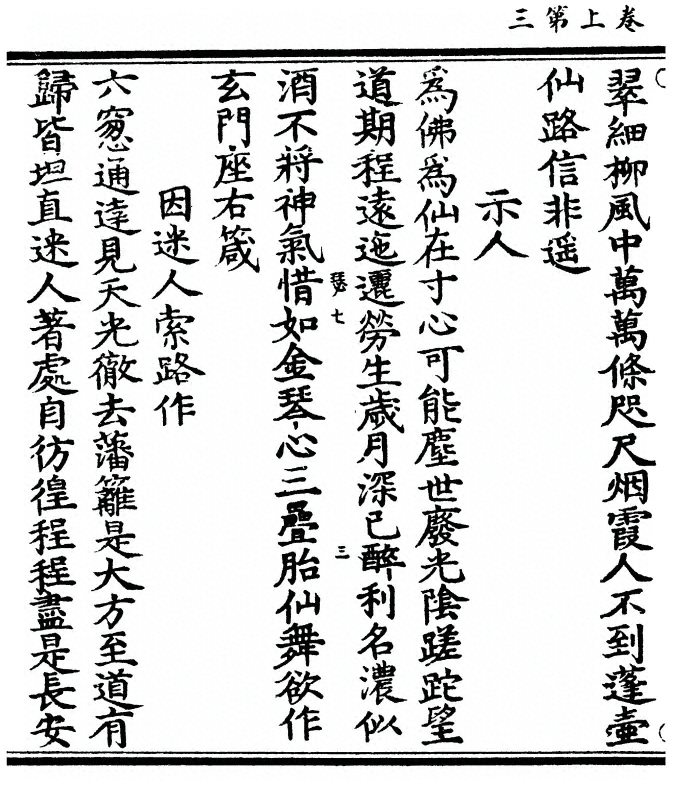 卷上第三
翠細柳風中萬萬條咫尺烟霞人不到蓬壺
仙路信非遥
示人
爲佛爲仙在寸心可能塵世廢光陰蹉跎望
道期程遠迤邐勞生歲月深已醉利名濃似
瑟七
三
酒不將神氣惜如金琴心三疊胎仙舞欲作
玄門座右箴
因迷人索路作
六窻通達見天光徹去藩籬是大方至道有
歸皆坦直迷人著處自彷徨程程盡是長安